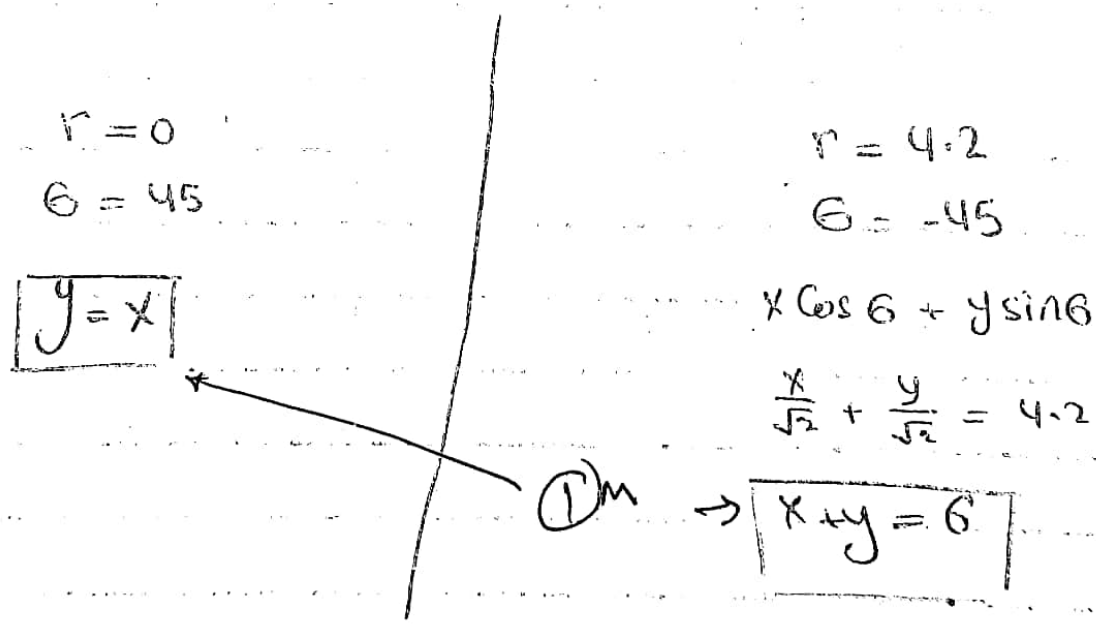 r = 0
θ = 45
y = x
r = 4.2
θ = -45
x Cos θ + y sin θ
x/√2 + y/√2 = 4.2
① m → x + y = 6